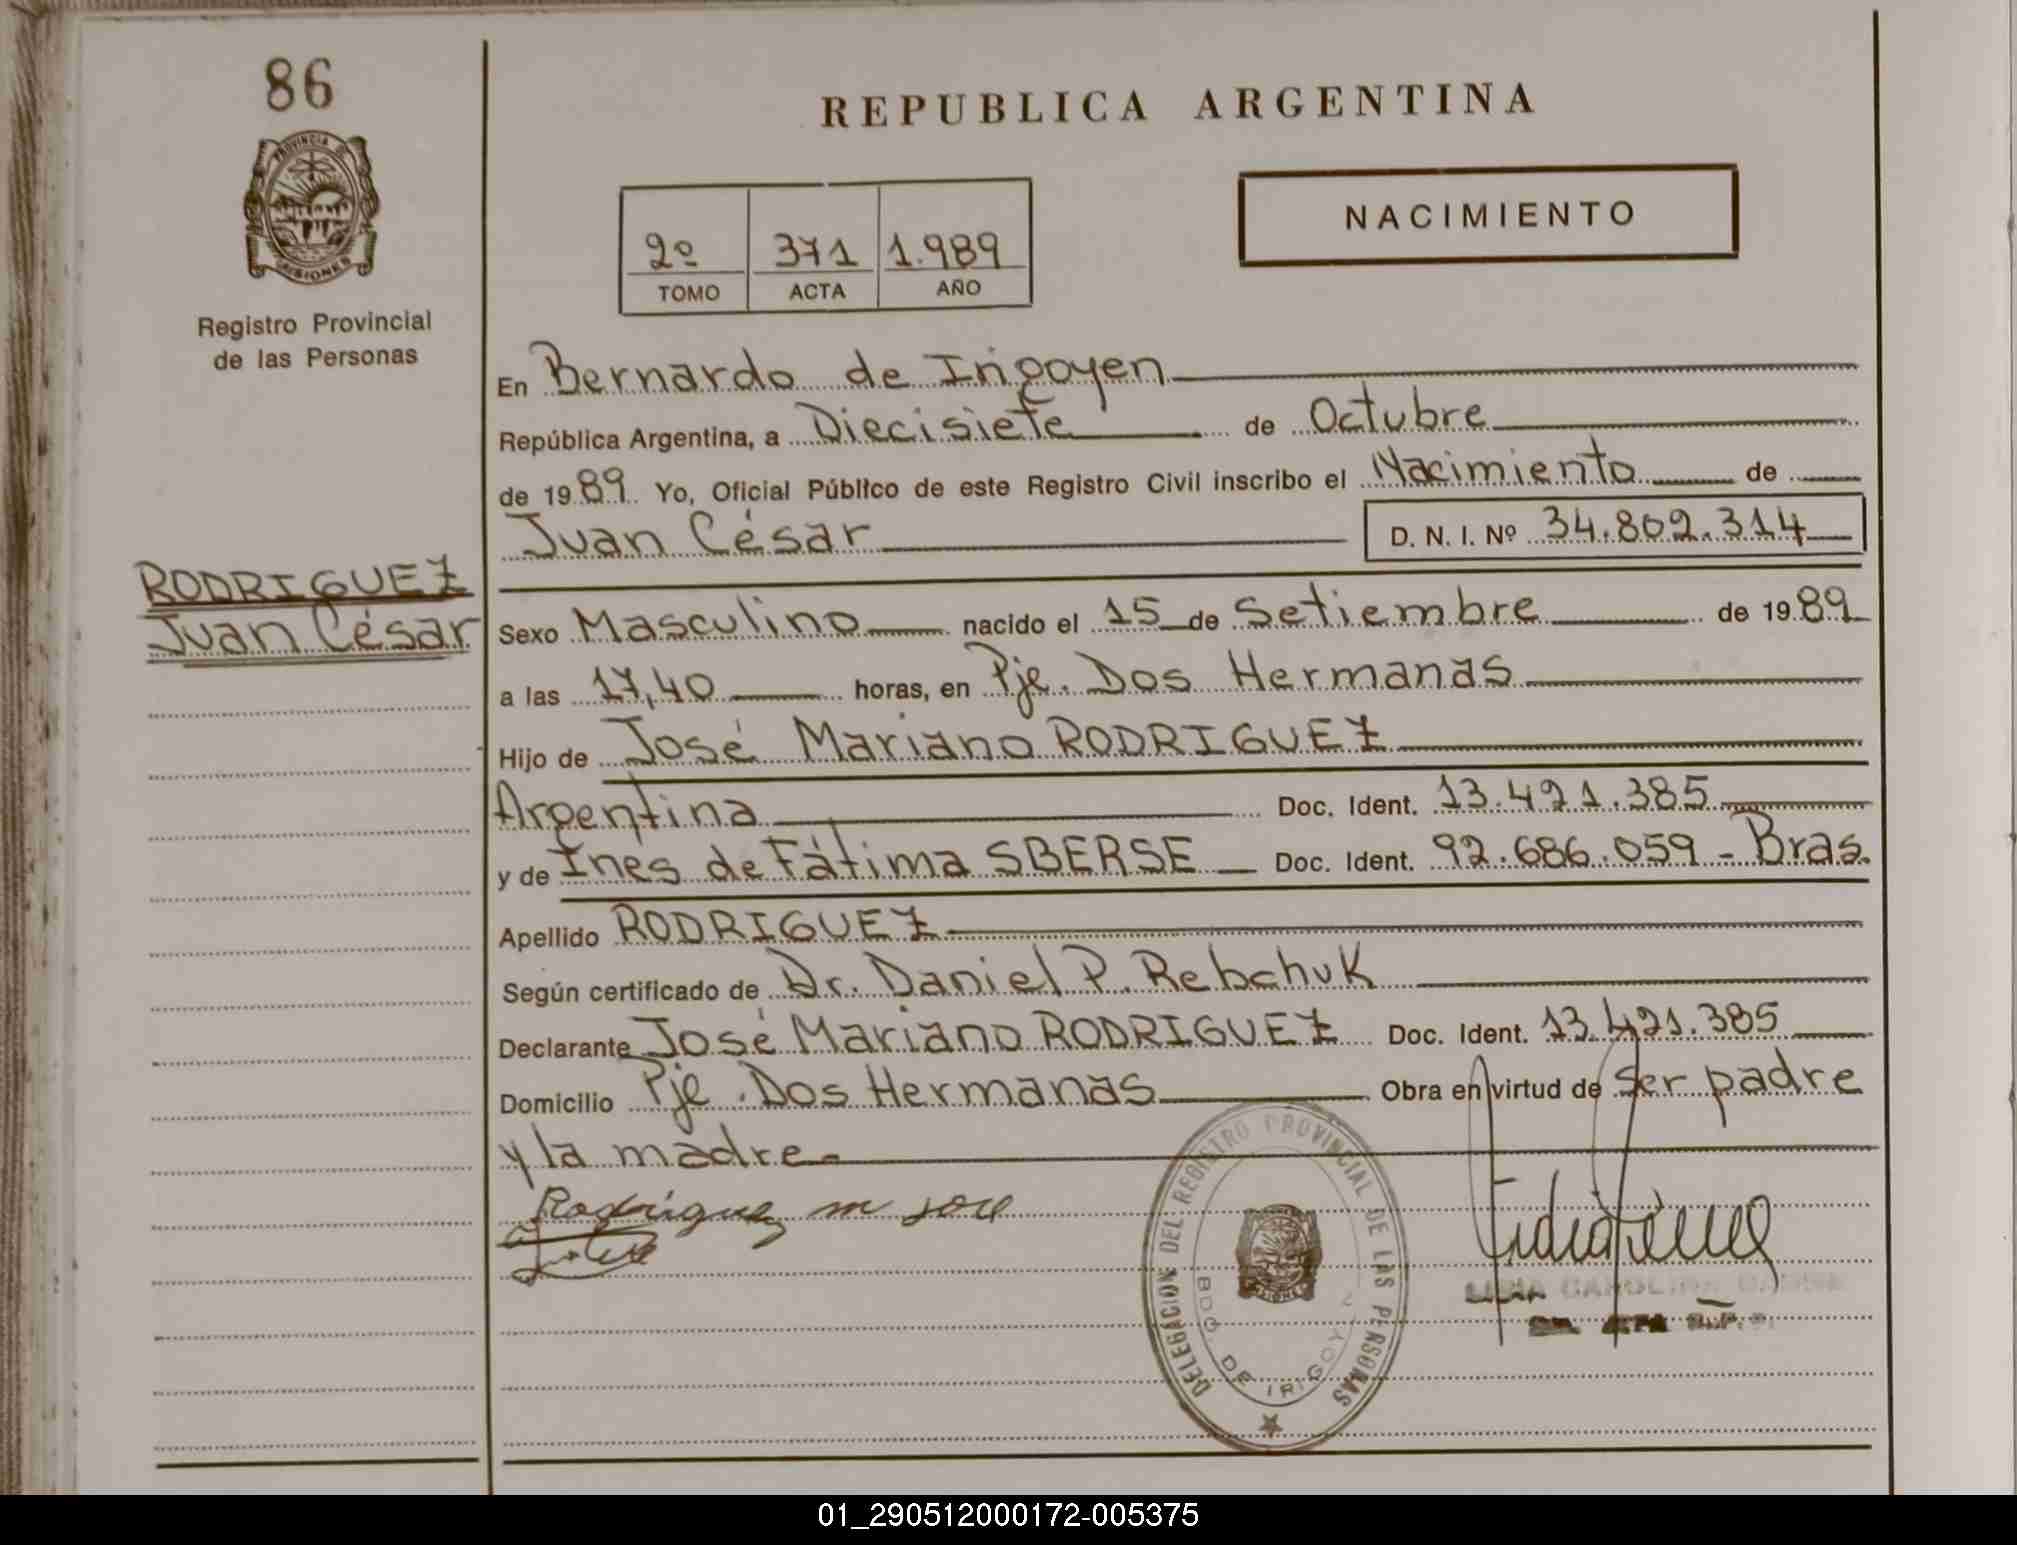 86
REPUBLICA ARGENTINA
PROVINCIA DE
MISIONES
Registro Provincial
de las Personas
2º 371 1.989
TOMO ACTA AÑO
NACIMIENTO
En Bernardo de Irigoyen
República Argentina, a Diecisiete de Octubre
de 1989 Yo, Oficial Público de este Registro Civil inscribo el Nacimiento de
Juan César D. N. I. Nº 34.802.314
RODRIGUEZ
Juan César
Sexo Masculino nacido el 15 de Setiembre de 1989
a las 17,40 horas, en Pje. Dos Hermanas
Hijo de José Mariano RODRIGUEZ
Argentina Doc. Ident. 13.421.385
y de Inés de Fátima SBERSE Doc. Ident. 92.686.059 - Bras.
Apellido RODRIGUEZ
Según certificado de Dr. Daniel P. Rebchuk
Declarante José Mariano RODRIGUEZ Doc. Ident. 13.421.385
Domicilio Pje. Dos Hermanas Obra en virtud de Ser padre
y la madre.
Rodriguez m jose
DELEGACION DEL REGISTRO PROVINCIAL DE LAS PERSONAS
BDO. DE IRIGOY
CAROLINA
01_290512000172-005375